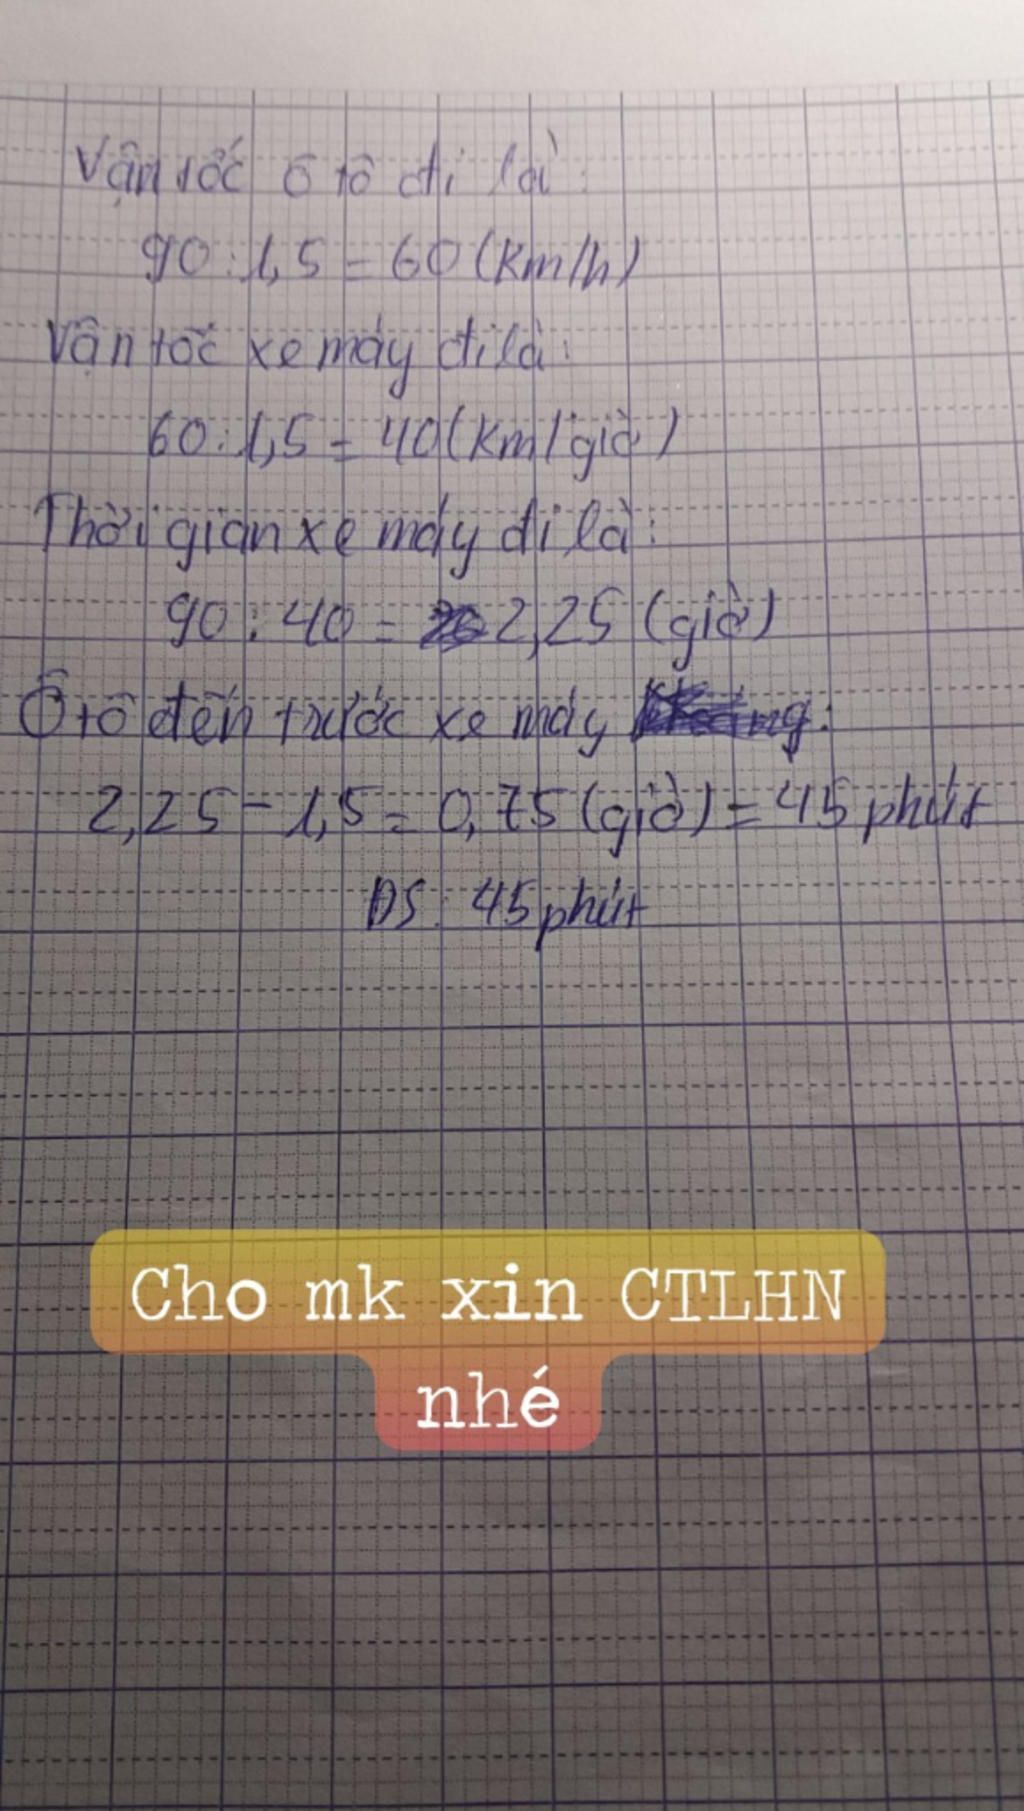 Vận tốc ô tô đi là:
90 : 1,5 = 60 (km/h)
Vận tốc xe máy đi là:
60 : 1,5 = 40 (km/giờ)
Thời gian xe máy đi là:
90 : 40 = 2,25 (giờ)
Ô tô đến trước xe máy :
2,25 - 1,5 = 0,75 (giờ) = 45 phút
ĐS: 45 phút
Cho mk xin CTLHN
nhé